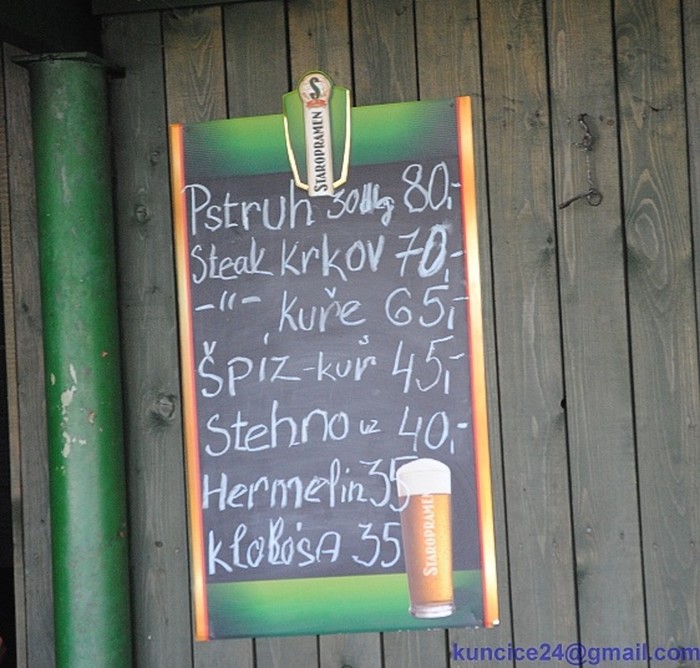 S
STAROPRAMEN
Pstruh 80,-
Steak krkov 70,-
-"- kuře 65,-
Špíz-kuř 45,-
Stehno uz 40,-
Hermelin 35
Klobósa 35
STAROPRAMEN
kuncice24@gmail.com